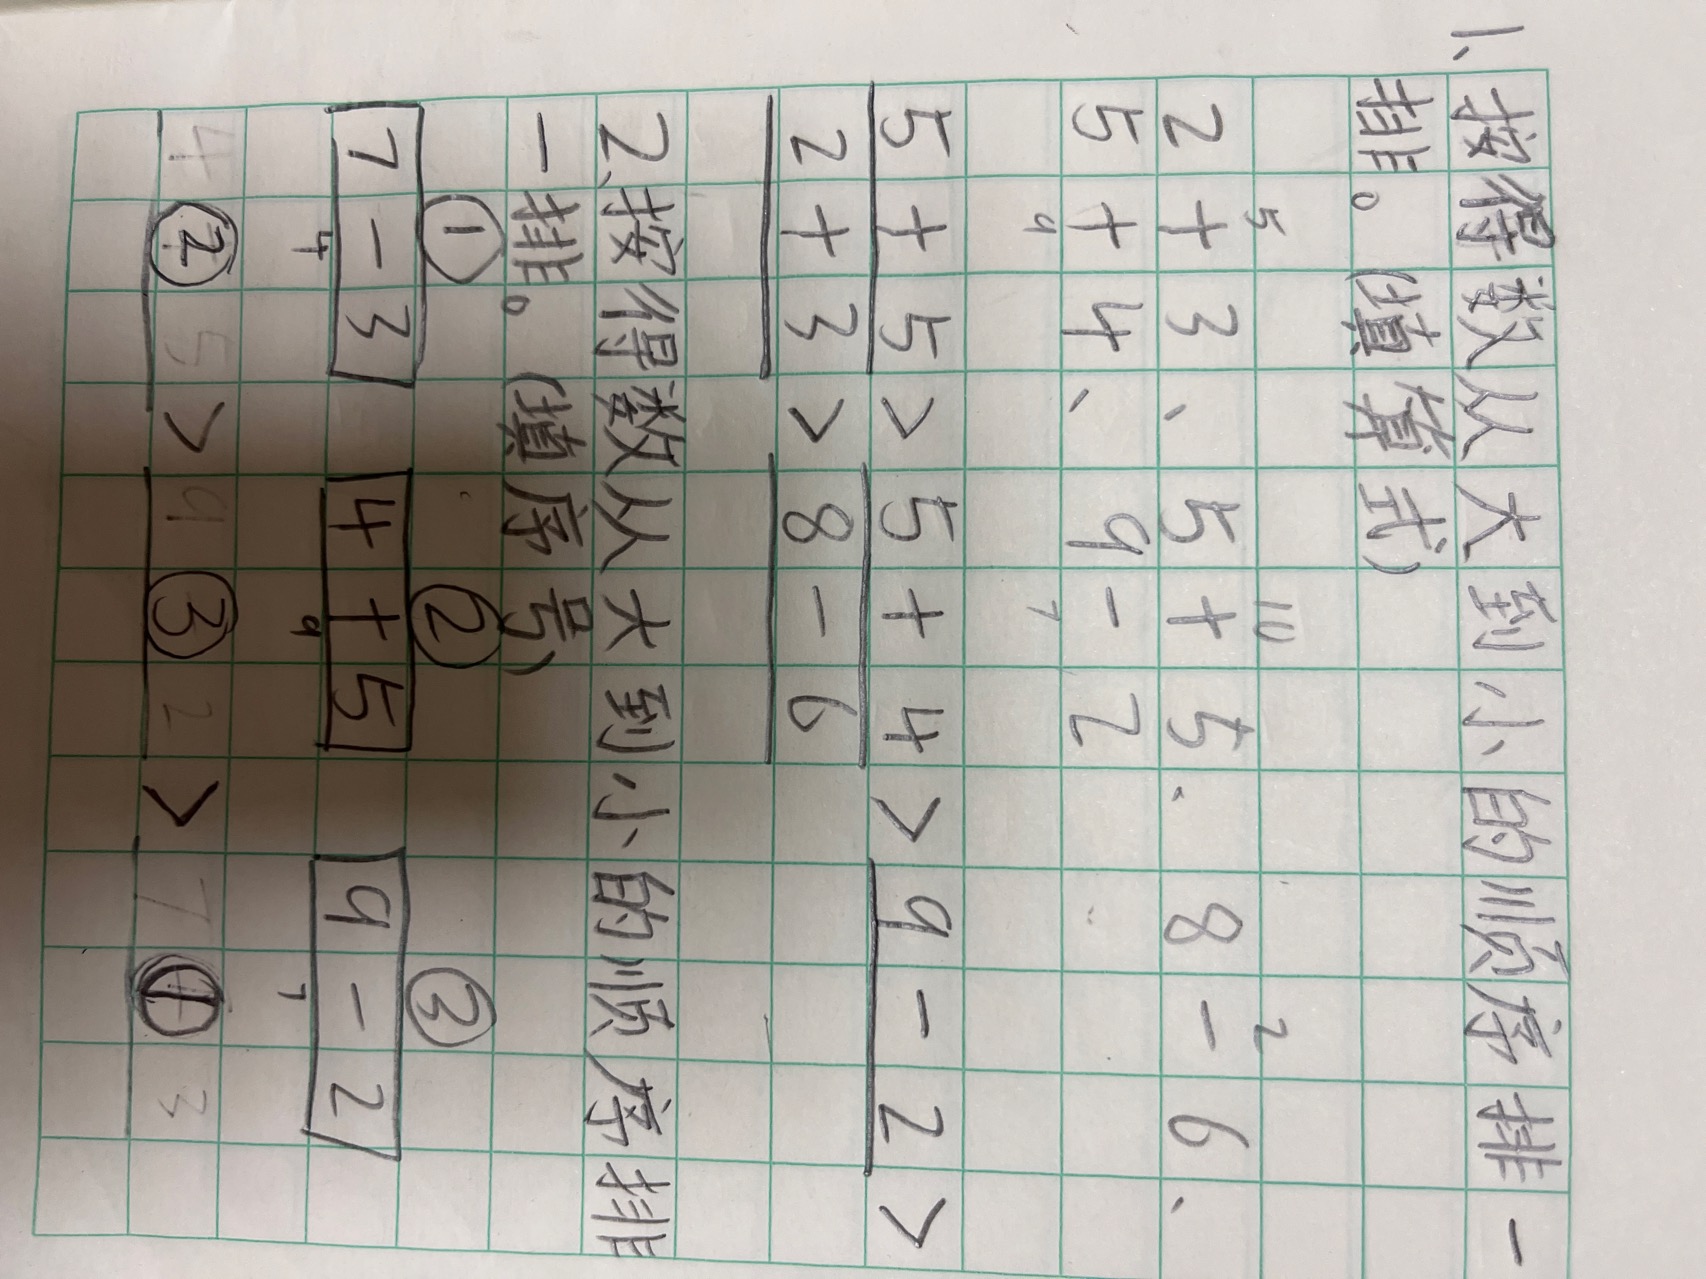 1、按得数从大到小的顺序排一
排。(填算式)
5 10 2
2+3、5+5、8-6、
5+4、9-2
9 7
5+5>5+4>9-2>
2+3>8-6
2、按得数从大到小的顺序排
一排。(填序号)
① ② ③
7-3 4+5 9-2
4 9 7
②>③>①